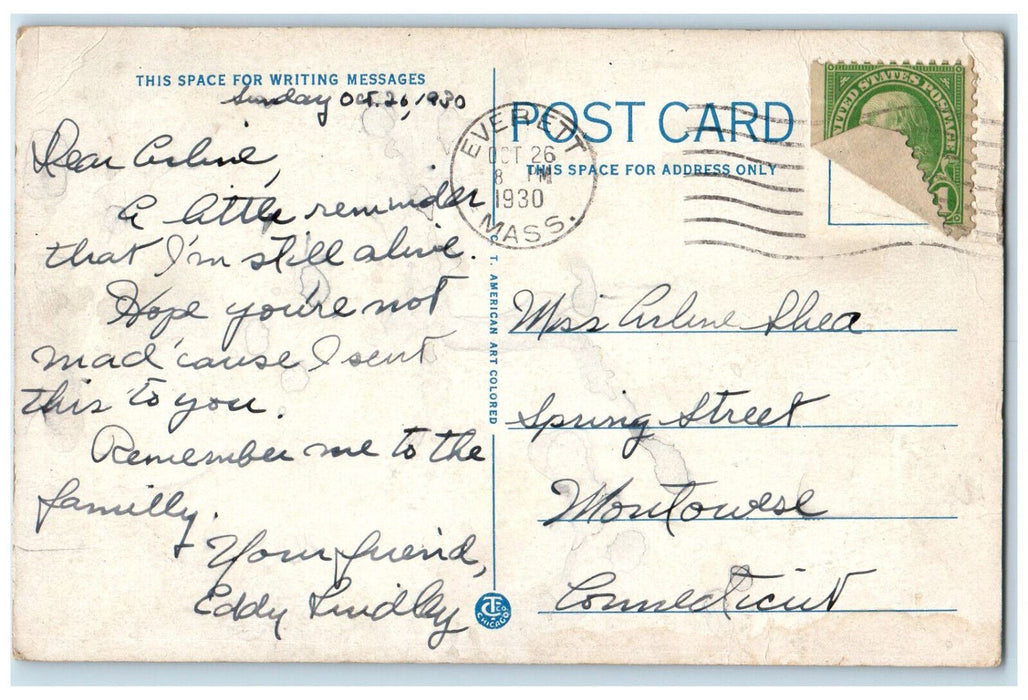 THIS SPACE FOR WRITING MESSAGES
Sunday Oct. 26, 1930
Dear Arline,
A little reminder
that I'm still alive.
Hope you're not
mad 'cause I sent
this to you.
Remember me to the
familly.
Your friend,
Eddy Lindley
C. T. AMERICAN ART COLORED
CTCO
CHICAGO
EVERETT
OCT 26
8 PM
1930
MASS.
POST CARD
THIS SPACE FOR ADDRESS ONLY
UNITED STATES POSTAGE
Miss Arline Shea
Spring Street
Montowese
Connecticut